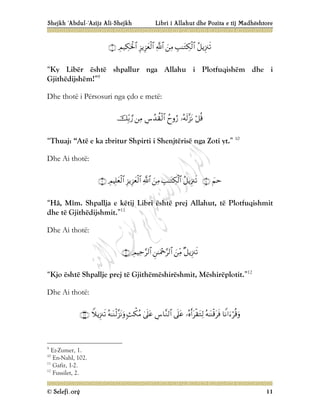 Shejkh 'Abdul-'Aziz Ali-Shejkh Libri i Allahut dhe Pozita e tij Madhështore
تَنزِيلُ ٱلْكِتَـٰبِ مِنَ ٱللَّهِ ٱلْعَزِيزِ ٱلْحَكِيمِ ﴿١﴾
"Ky Libër është shpallur nga Allahu i Plotfuqishëm dhe i
Gjithëdijshëm!"9
Dhe thotë i Përsosuri nga çdo e metë:
قُلْ نَزَّلَهُۥ رُوحُ ٱلْقُدُسِ مِن رَّبِّكَ
"Thuaj: “Atë e ka zbritur Shpirti i Shenjtërisë nga Zoti yt." 10
Dhe Ai thotë:
حمٓ ﴿١﴾ تَنزِيلُ ٱلْكِتَـٰبِ مِنَ ٱللَّهِ ٱلْعَزِيزِ ٱلْعَلِيمِ ﴿٢﴾
"Hâ, Mîm. Shpallja e këtij Libri është prej Allahut, të Plotfuqishmit
dhe të Gjithëdijshmit."11
Dhe Ai thotë:
تَنزِيلٌ مِّنَ ٱلرَّحْمَـٰنِ ٱلرَّحِيمِ ﴿٢﴾
"Kjo është Shpallje prej të Gjithëmëshirëshmit, Mëshirëplotit."12
Dhe Ai thotë:
وَقُرْءَانًا فَرَقْنَـٰهُ لِتَقْرَأَهُۥ عَلَى ٱلنَّاسِ عَلَىٰ مُكْثٍ وَنَزَّلْنَـٰهُ تَنزِيلًا ﴿١٠٦﴾
9 Ez-Zumer, 1.
10 En-Nahl, 102.
11 Gafir, 1-2.
12 Fussilet, 2.
© Selefi.org 11